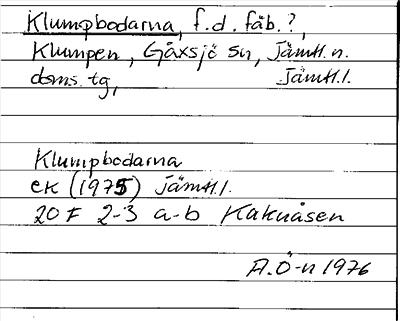 Klumpbodarna, f.d. fäb.?,
Klumpen, Gåxsjö sn, Jämtl. n.
doms. tg, Jämtl. l.
Klumpbodarna
ek (1975) Jämtl. l.
20 F 2-3 a-b Kakuåsen
A.Ö-n 1976